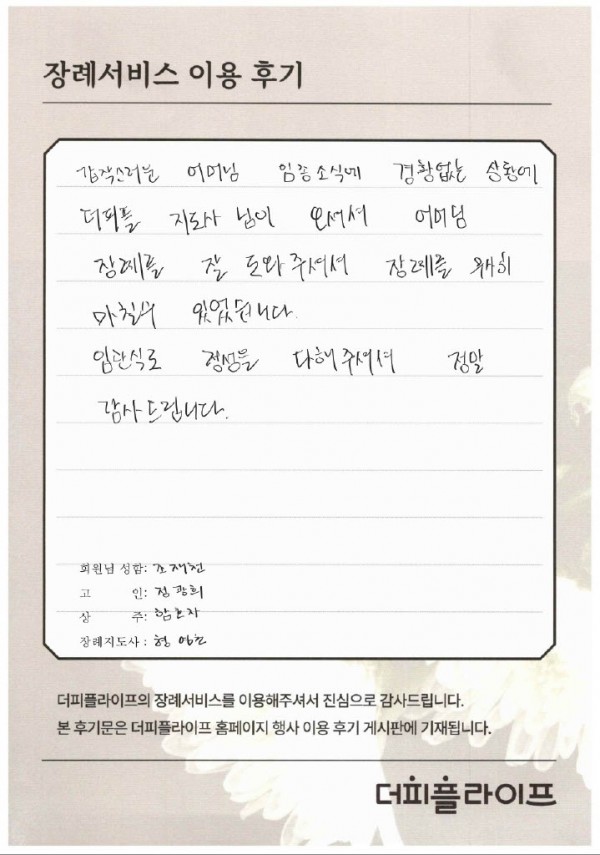 장례서비스 이용 후기
갑작스러운 어머님 임종소식에 경황없는 상황에
더피플 지도사 님이 오셔셔 어머님
장례를 잘 도와주셔셔 장례를 무사히
마칠수 있었읍니다.
입관식도 정성을 다해주셔셔 정말
감사드립니다.
회원님 성함: 조재천
고 인: 정광희
상 주:
장례지도사 :
더피플라이프의 장례서비스를 이용해주셔서 진심으로 감사드립니다.
본 후기문은 더피플라이프 홈페이지 행사 이용 후기 게시판에 기재됩니다.
더피플라이프